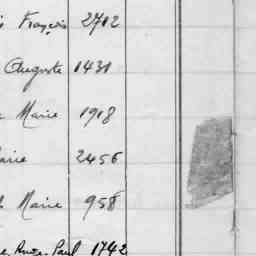 François 2712
Auguste 1431
Marie 1918
Marie 2456
Marie 958
Paul 1742